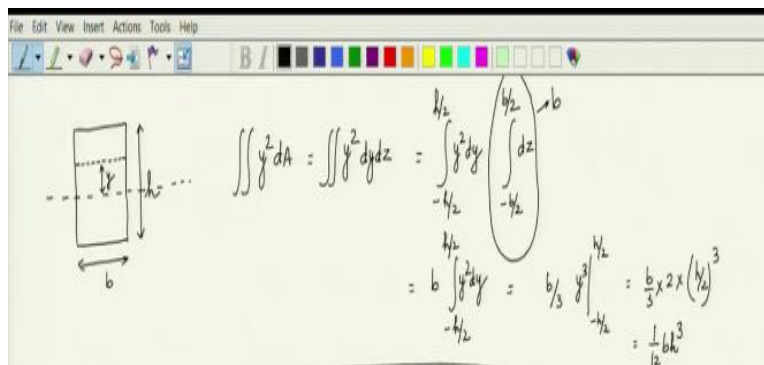 File Edit View Insert Actions Tools Help
B I
∬ y² dA = ∬ y² dy dz = ∫_{-h/2}^{h/2} y² dy ∫_{-b/2}^{b/2} dz → b
y h
b
= b ∫_{-h/2}^{h/2} y² dy = b/3 y³ |_{-h/2}^{h/2} = b/3 × 2 × (h/2)³
= 1/12 bh³